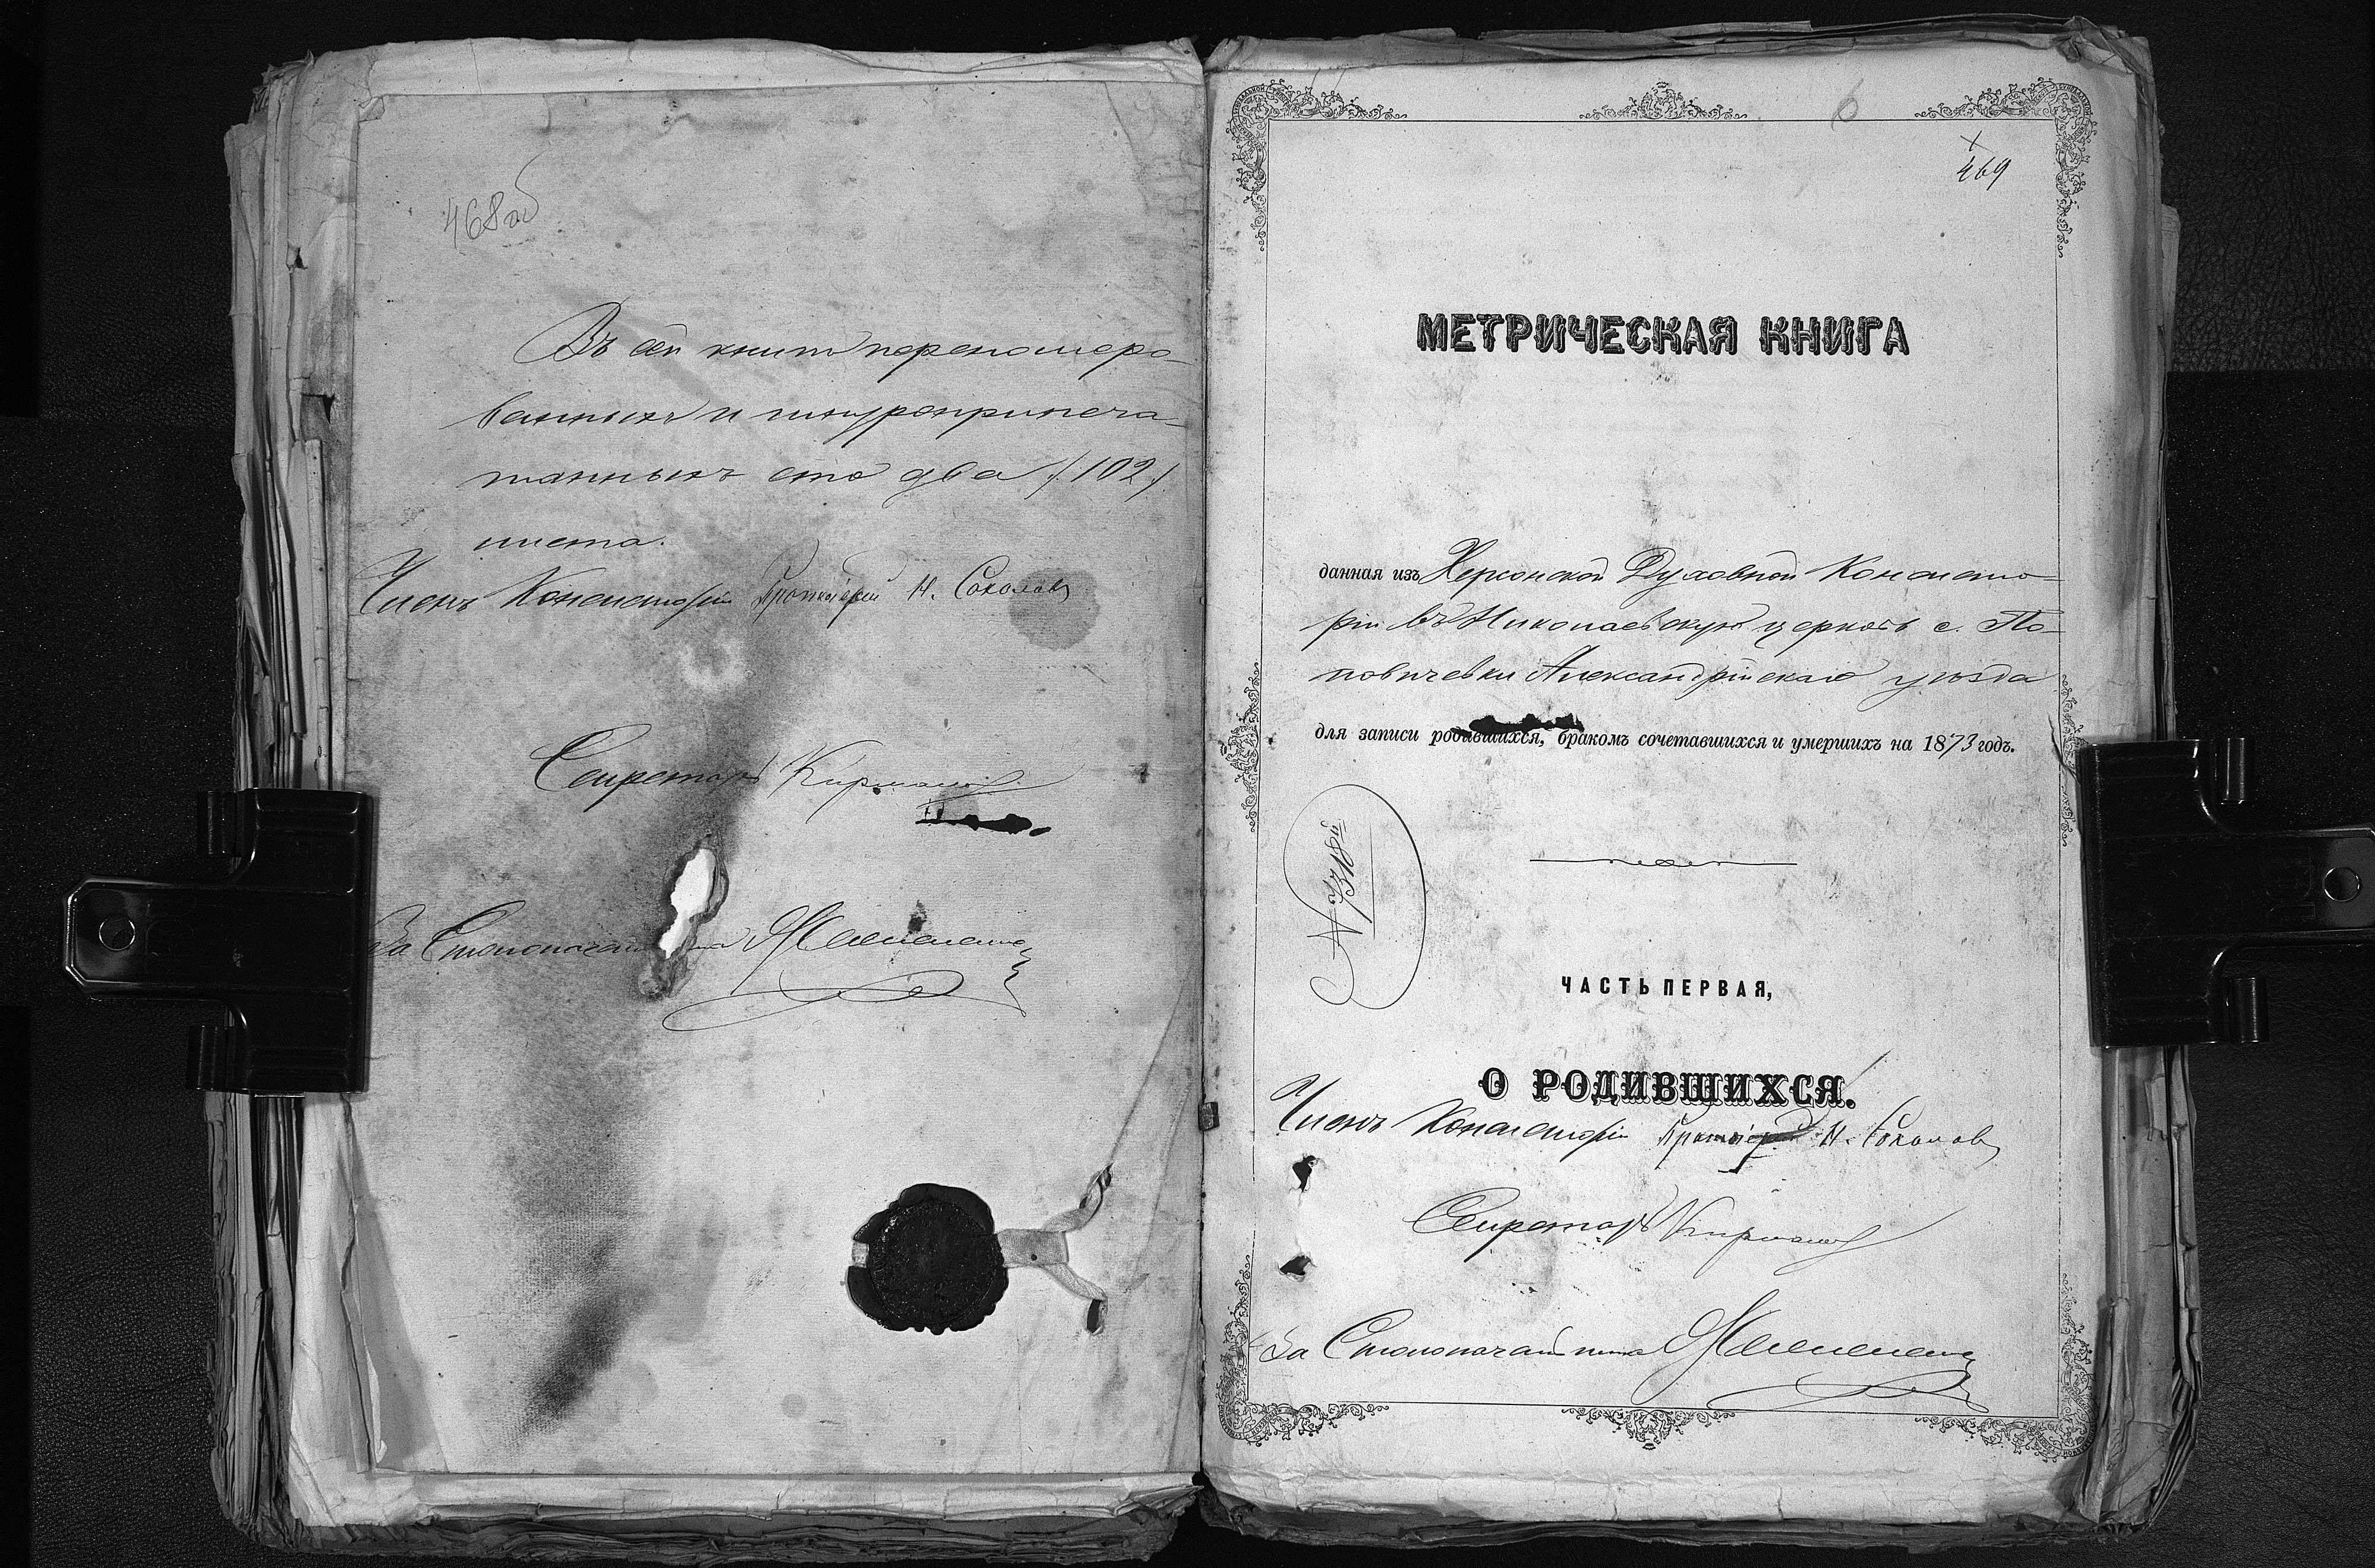 468 об
Въ сей книгѣ перенумеро-
ванныхъ и шнуроприпеча-
танныхъ сто два /. 102 /.
листа.
Членъ Консисторіи Протоіерей Н. Соколовъ
Секретарь
За Столоначальника
6
469
МЕТРИЧЕСКАЯ КНИГА
данная изъ Херсонской Духовной Консисто-
ріи въ Николаевскую церковь с. По-
повичевки Александрійскаго уѣзда
для записи родившихся, бракомъ сочетавшихся и умершихъ на 1873 годъ.
ЧАСТЬ ПЕРВАЯ,
О РОДИВШИХСЯ.
Членъ Консисторіи Протоіерей Н. Соколовъ
Секретарь
За Столоначальника